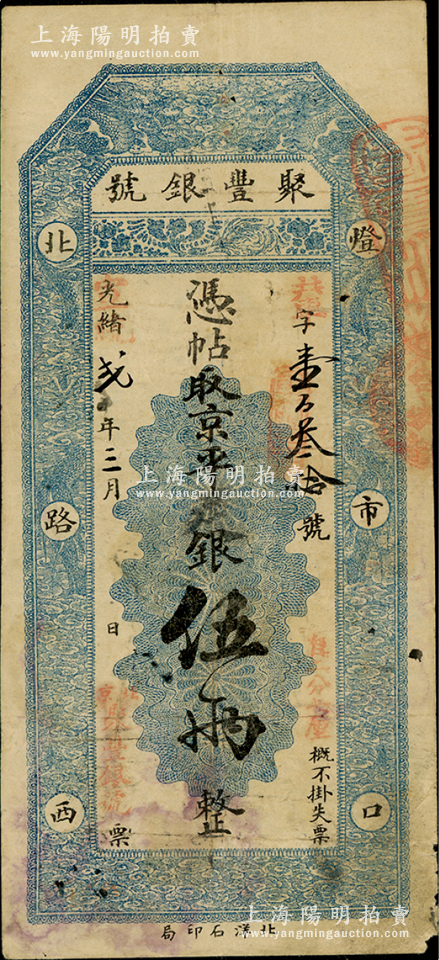 上海陽明拍賣
www.yangmingauction.com
聚豐銀號
燈市口
北路西
字壹百叁拾號
憑帖取京平足銀伍兩整
光緒弍年三月 日 票
概不掛失票
上海陽明拍賣
www.yangmingauction.com
北洋石印局
上海陽明拍賣
www.yangmingauction.com